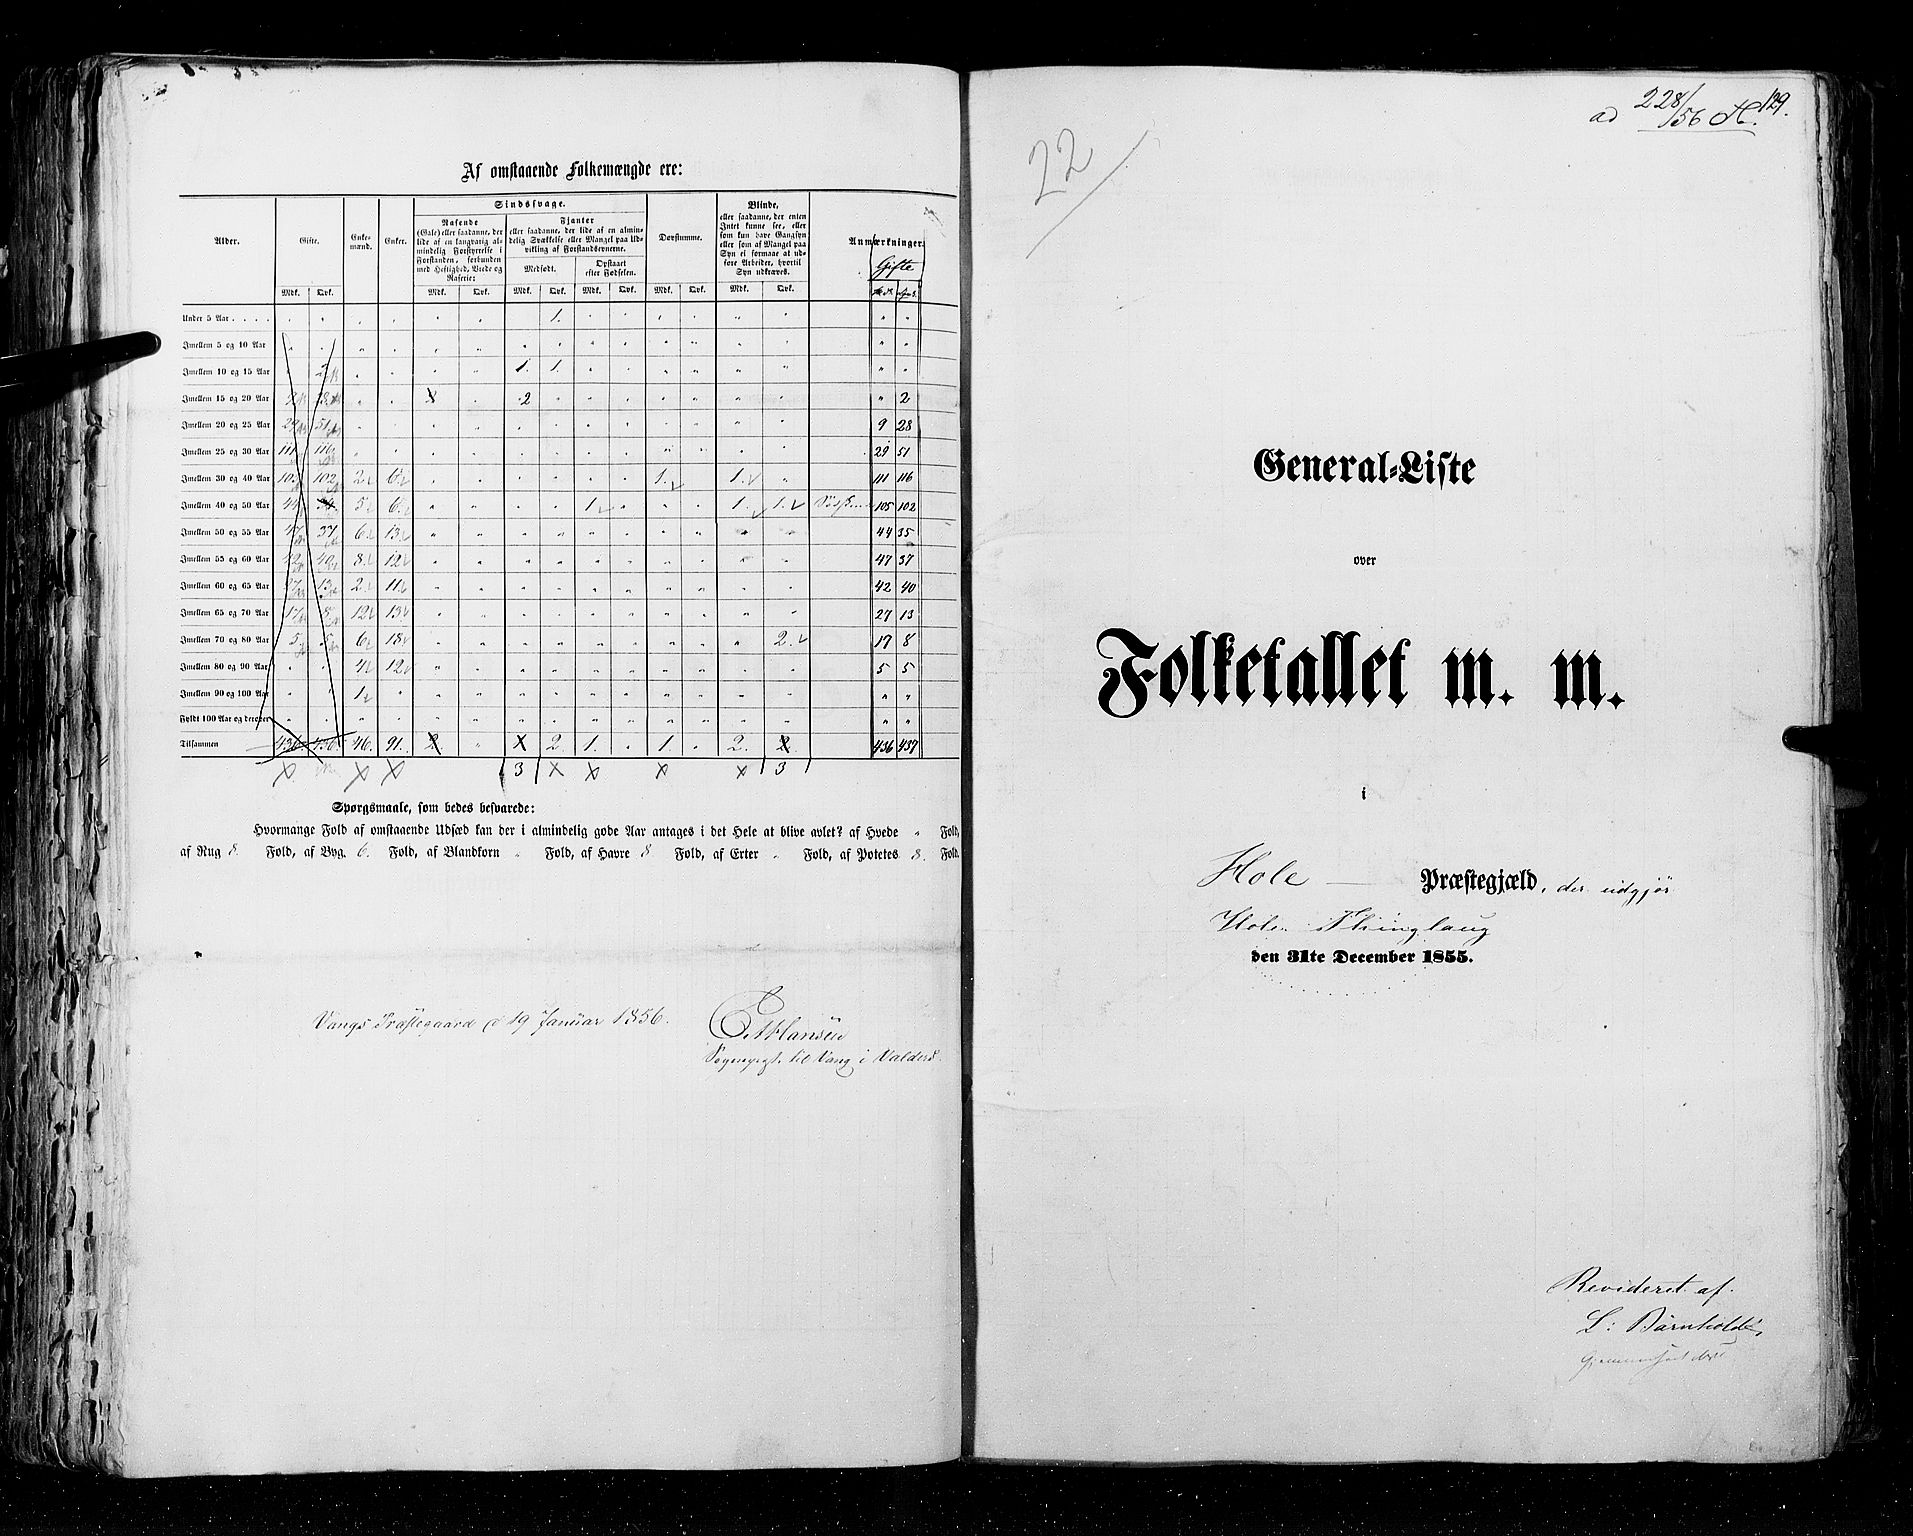 Af omstaaende Folkemængde ere:
Alder. Gifte. Enkemænd. Enker. Sindssvage. Døvstumme. Blinde, Anmærkninger.
Rasende
(Gale) eller saadanne, der
lide af en langvarig almindelig
Forstyrrelse i
Forstanden, forbunden
med Heftighed, Vrede og
Raserie:
Fjanter
eller saadanne, der lide af en almindelig
Svækkelse eller Mangel paa Udvikling
af Forstandsevnerne.
Medfødt. Opstaaet
efter Fødselen.
eller saadanne, der enten
Intet kunne see, eller
som kun have Gangsyn
eller som af Mangel paa
Syn ei formaae at udføre
Arbeider, hvortil
Syn udkræves.
Gifte
Mdk. Qvk. Mdk. Qvk. Mdk. Qvk. Mdk. Qvk. Mdk. Qvk. Mdk. Qvk.
Under 5 Aar . . . . 1. " "
Imellem 5 og 10 Aar " "
Imellem 10 og 15 Aar 1. 1. " "
Imellem 15 og 20 Aar 2 " 2
Imellem 20 og 25 Aar 29 51 9 28
Imellem 25 og 30 Aar 111 116 29 51
Imellem 30 og 40 Aar 102 2 6 1. 1. 111 116
Imellem 40 og 50 Aar 44 5 6 1 1. 1. 105 102
Imellem 50 og 55 Aar 47 37 6 13 44 35
Imellem 55 og 60 Aar 42 40 8 12 47 37
Imellem 60 og 65 Aar 27 13 2 11 42 40
Imellem 65 og 70 Aar 17 8 12 13 27 13
Imellem 70 og 80 Aar 5 5 6 18 2. 17 8
Imellem 80 og 90 Aar 4 12 5 5
Imellem 90 og 100 Aar 1 " " "
Fyldt 100 Aar og derover " "
Tilsammen 436 436 46. 91. 2 X 2. 1. 1. 2. 2. 436 437
3 3
Spørgsmaale, som bedes besvarede:
Hvormange Fold af omstaaende Udsæd kan der i almindelig gode Aar antages i det Hele at blive avlet? af Hvede " Fold,
af Rug 8. Fold, af Byg. 6. Fold, af Blandkorn " Fold, af Havre 8 Fold, af Erter " Fold, af Potetes 8. Fold.
Vangs Præstegaard d 19 Januar 1856.
Hansen
Sognepræst til Vang i Valders.
ad 228/56 129.
22
General-Liste
over
Folketallet m. m.
i
Hole Præstegjæld, der udgjør
Hole Thinglaug
den 31te December 1855.
Revideret af
L: Børnholdt,